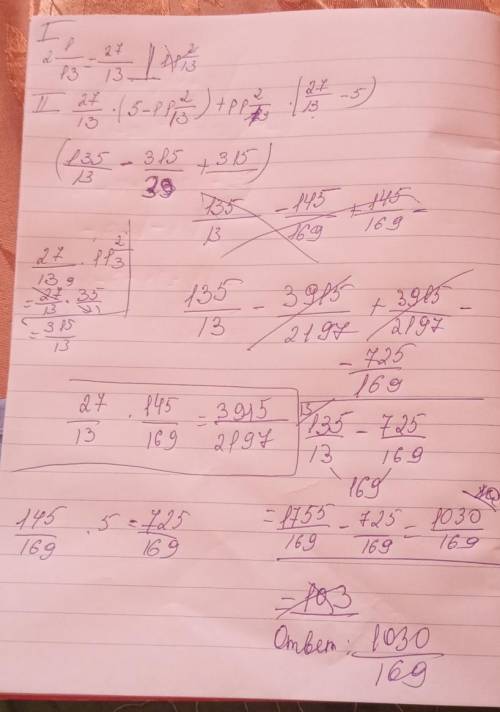 I
2 1/13 = 27/13
II 27/13 · (5 - 11 2/13) + 11 2/13 · (27/13 - 5)
(135/13 - 315/39 + 315)
135/13 - 145/169 + 145/169 -
27/13 · 11 2/13
= 27/13 · 35
= 315/13
135/13 - 3915/2197 + 3915/2197 -
- 725/169
27/13 · 145/169 = 3915/2197
135/13 - 725/169
169
145/169 · 5 = 725/169
= 1755/169 - 725/169 = 1030/169
= 103
Ответ: 1030/169